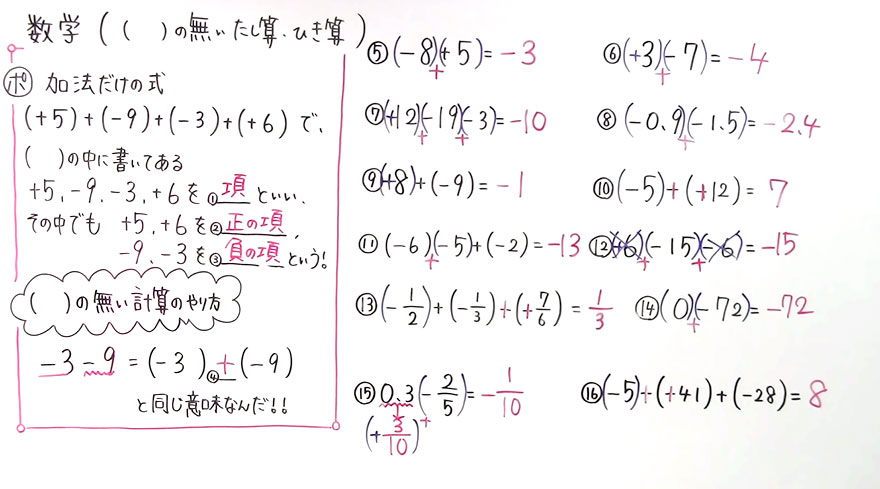 数学 ( (  ) の無いたし算・ひき算 )
ポ 加法だけの式
(+5)+(-9)+(-3)+(+6) で、
(  ) の中に書いてある
+5、-9、-3、+6を ①項 といい、
その中でも +5、+6を ②正の項、
-9、-3を ③負の項 という!
(  ) の無い計算のやり方
-3-9 = (-3) ④+ (-9)
と同じ意味なんだ!!
⑤ (-8)+(+5) = -3
⑥ (+3)+(-7) = -4
⑦ (+12)+(-19)+(-3) = -10
⑧ (-0.9)+(-1.5) = -2.4
⑨ (+8)+(-9) = -1
⑩ (-5)+(+12) = 7
⑪ (-6)+(-5)+(-2) = -13
⑫ (+6)+(-15)+(-6) = -15
⑬ (-1/2)+(-1/3)+(+7/6) = 1/3
⑭ (0)+(-72) = -72
⑮ 0.3(-2/5) = -1/10
(+3/10)+
⑯ (-5)+(+41)+(-28) = 8